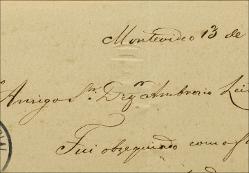 Montevideo 13 de
Amigo Sr. Dr. Dn Ambrosio
Fui obsequiado como